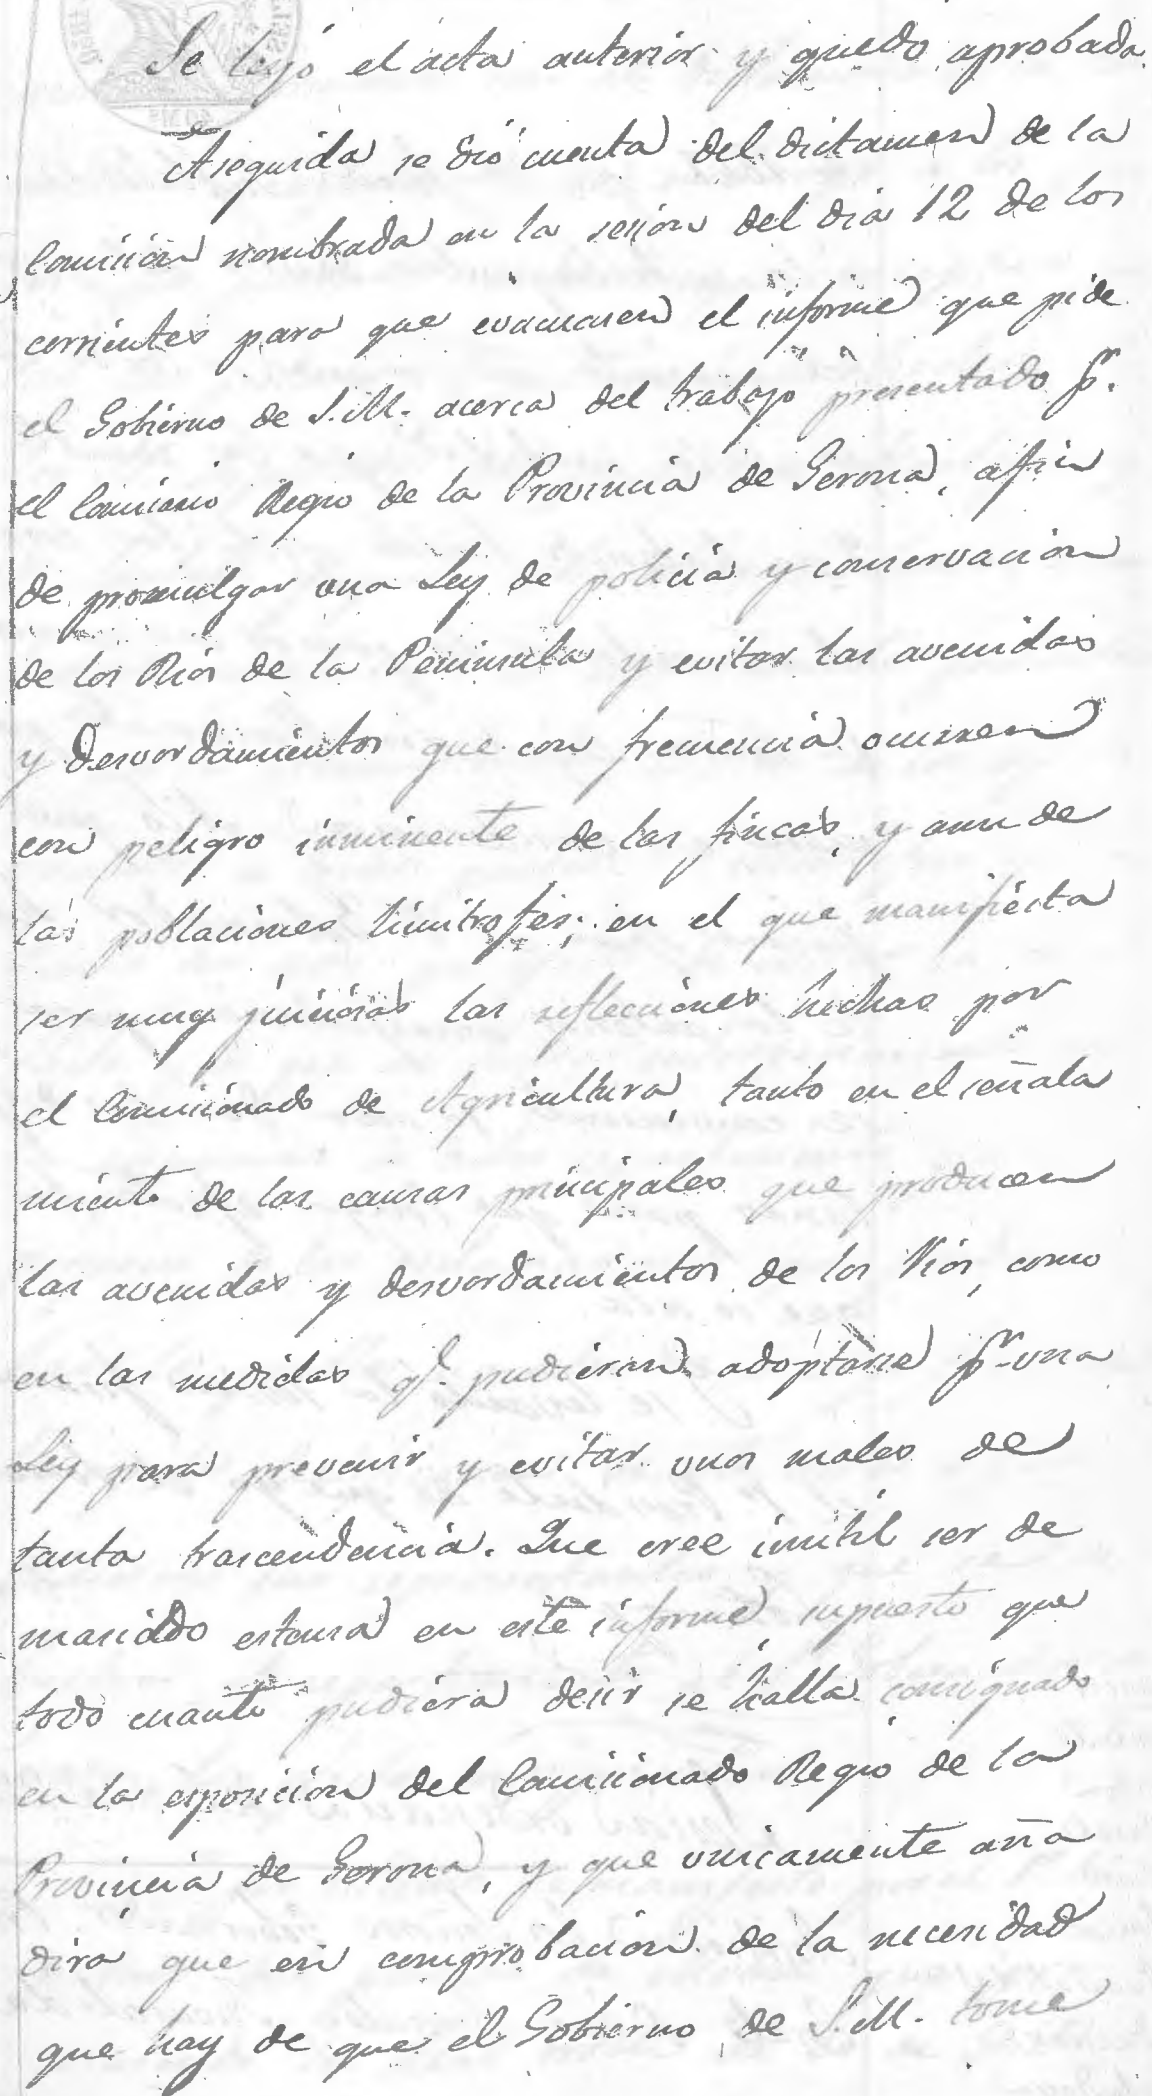 Se leyó el acta anterior y quedo aprobada.
Aseguida se dió cuenta del dictamen de la
Comision nombrada en la sesion del dia 12 de los
corrientes para que evacuasen el informe que pide
el Gobierno de S.M. acerca del trabajo presentado pr.
el Comisario Regio de la Provincia de Gerona, afin
de promulgar una Ley de policia y conservacion
de los Rios de la Peninsula y evitar las avenidas
y desvordamientos que con frecuencia ocurren
con peligro inminente de las fincas, y aun de
las poblaciones limitrofes; en el que manifiesta
ser muy juiciosas las reflecciones hechas por
el Comisionado de Agricultura, tanto en el señala
miento de las causas principales que producen
las avenidas y desvordamientos de los Rios, como
en las medidas qe. pudieran adoptarse pr. una
Ley para prevenir y evitar unos males de
tanta trascendencia. Que cree inutil ser de
masiado estensa en este informe, supuesto que
todo cuanto pudiera desir se halla consignado
en la esposicion del Comisionado Regio de la
Provincia de Gerona, y que unicamente aña
dira que en comprobacion de la necesidad
que hay de que el Gobierno de S.M. tome